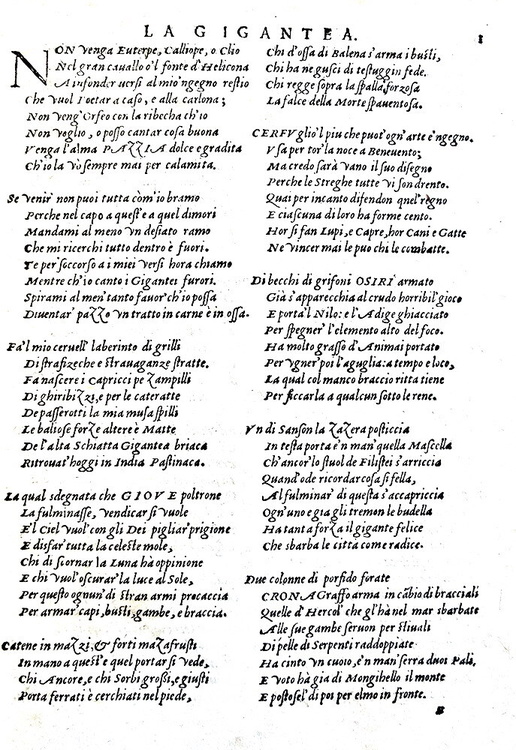 LA GIGANTEA.
1
NON venga Euterpe, Calliope, o Clio
Nel gran cauallo o'l fonte d'Helicona
A infonder uersi al mio'ngegno restio
Che vuol Poetar a caso, e alla carlona;
Non veng'Orfeo con la ribecha ch'io
Non voglio, o posso cantar cosa buona
Venga l'alma PAZZIA dolce e gradita
Ch'io la vo sempre mai per calamita.
Se venir non puoi tutta com'io bramo
Perche nel capo a quest'e a quel dimori
Mandami al meno vn desiato ramo
Che mi ricerchi tutto dentro e fuori.
Te per soccorso a i miei versi hora chiamo
Mentre ch'io canto i Gigantei furori.
Spirami al men tanto fauor ch'io possa
Diuentar pazzo vn tratto in carne e in ossa.
Fa'l mio ceruell' laberinto di grilli
Di strafizeche e strauaganze stratte.
Fa nascere i Capricci pe Zampilli
Di ghiribizzi, e per le cateratte
De passerotti la mia musa spilli
Le baliose forze altere e Matte
De l'alta Schiatta Gigantea briaca
Ritrouat'hoggi in India Pastinaca.
La qual sdegnata che GIOVE poltrone
La fulminasse, vendicar si vuole
E'l Ciel vuol con gli Dei pigliar prigione
E disfar tutta la celeste mole,
Chi di scornar la Luna hà oppinione
E chi vuol'oscurar la luce al Sole,
Per questo ognun'di stran armi procaccia
Per armar'capi, busti, gambe, e braccia.
Catene in mazzi, & forti mazafrusti
In mano a quest'e quel portar si vede,
Chi Ancore, e chi Sorbi grossi, e giusti
Porta ferrati è cerchiati nel piede,
Chi d'ossa di Balena s'arma i busti,
Chi ha ne gusci di testuggin fede.
Chi regge sopra la spalla forzosa
La falce della Morte spauentosa.
CERFVglio'l piu che puot'ogn'arte e'ngegno.
Vsa per tor'la noce a Beneuento;
Ma credo sarà vano il suo disegno
Perche le Streghe tutte vi son drento.
Quai per incanto difendon quel'regno
E ciascuna di loro ha forme cento.
Hor si fan Lupi, e Capre, hor Cani e Gatte
Ne vincer mai le puo chi le combatte.
Di becchi di grifoni OSIRI armato
Già s'apparecchia al crudo horribil'gioco
E porta'l Nilo: e l'Adige ghiacciato
Per spegner'l'elemento alto del foco.
Ha molto grasso d'Animai portato
Per vgner'poi l'aguglia: a tempo e loco,
La qual col manco braccio ritta tiene
Per ficcarla a qualcun sotto le rene.
Vn di Sanson la Zazera posticcia
In testa porta e'n man'quella Mascella
Ch'ancor'lo stuol de Filistei s'arriccia
Quand'ode ricordar cosa si fella,
Al fulminar di questa s'accapriccia
Ogn'uno e gia gli tremon le budella
Ha tanta forza il gigante felice
Che sbarba le città come radice.
Due colonne di porfido forate
CRONAGraffo arma in càbio di bracciali
Quelle d'Hercol' che gl'hà nel mar sbarbate
Alle sue gambe seruon per stiuali
Di pelle di Serpenti raddoppiate
Ha cinto vn cuoio, e'n man'serra duoi Pali,
E voto hà gia di Mongibello il monte
E postosel'di poi per elmo in fronte.
B